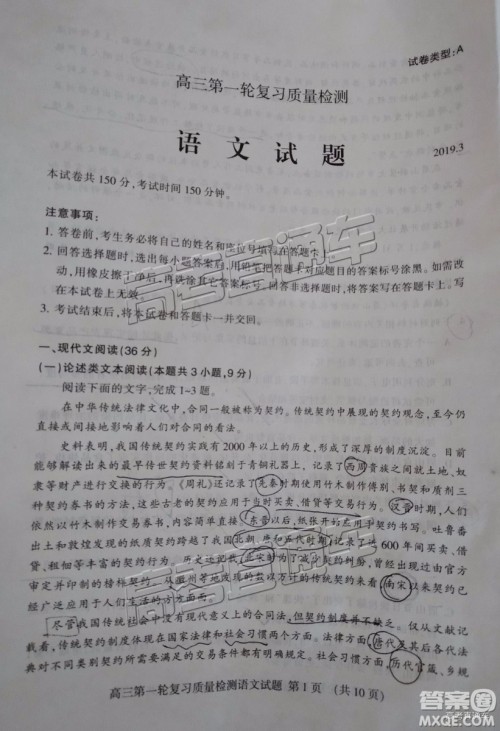 试卷类型:A
高三第一轮复习质量检测
语文试题
2019.3
本试卷共150分,考试时间150分钟。
注意事项:
1. 答卷前,考生务必将自己的姓名和座位号填写在答题卡上。
2. 回答选择题时,选出每小题答案后,用铅笔把答题卡对应题目的答案标号涂黑。如需改
动,用橡皮擦干净后,再选涂其它答案标号。回答非选择题时,将答案写在答题卡上。写
在本试卷上无效。
3. 考试结束后,将本试卷和答题卡一并交回。
一、现代文阅读(36分)
(一)论述类文本阅读(本题共3小题,9分)
阅读下面的文字,完成1-3题。
在中华传统法律文化中,合同一般被称为契约。传统契约中展现的契约观念,至今仍
直接或间接地影响着人们对合同的认知。
史料表明,我国传统契约实践有2000年以上的历史,形成了深厚的制度沉淀。目前能
够解读出来的最早传世契约资料铭刻于青铜礼器上。记录了西周贵族之间就土地、奴
隶等财产交换行为。《周礼》记录了先秦时期使用竹木制作傅别、书契和质剂三种材料
券书的方法,这些古老的契约应用于当时买卖、借贷等交易行为。汉晋时期,人们依
然以竹木制作交易券书,内容更加完善。东晋以后,纸张开始应用于契约书写。吐鲁番
出土和敦煌发现的大量契约实物展现了我国北朝、唐和五代时期,这600年间买卖、借
贷、租佃等丰富的民间交易内容。历史记载,北宋时为减少契约纠纷,曾倡导使用官府
审定并印制的标准契约。从徽州等地发现的数以万计的契约来看,南宋以来契约已
经广泛应用于生活的方方面面。
尽管我国传统社会中没有现代意义上的合同法,但契约观念和制度并不缺乏。
看,传统契约制度体现在国家法律和社会习惯两个方面。法律方面,历代官箴、乡
对不同类别契约所需要满足的交易条件都有明确的规定。社会习惯方面,
高三第一轮复习质量检测语文试题 第1页 (共10页)
高考直通车
答案圈
MXQE.COM